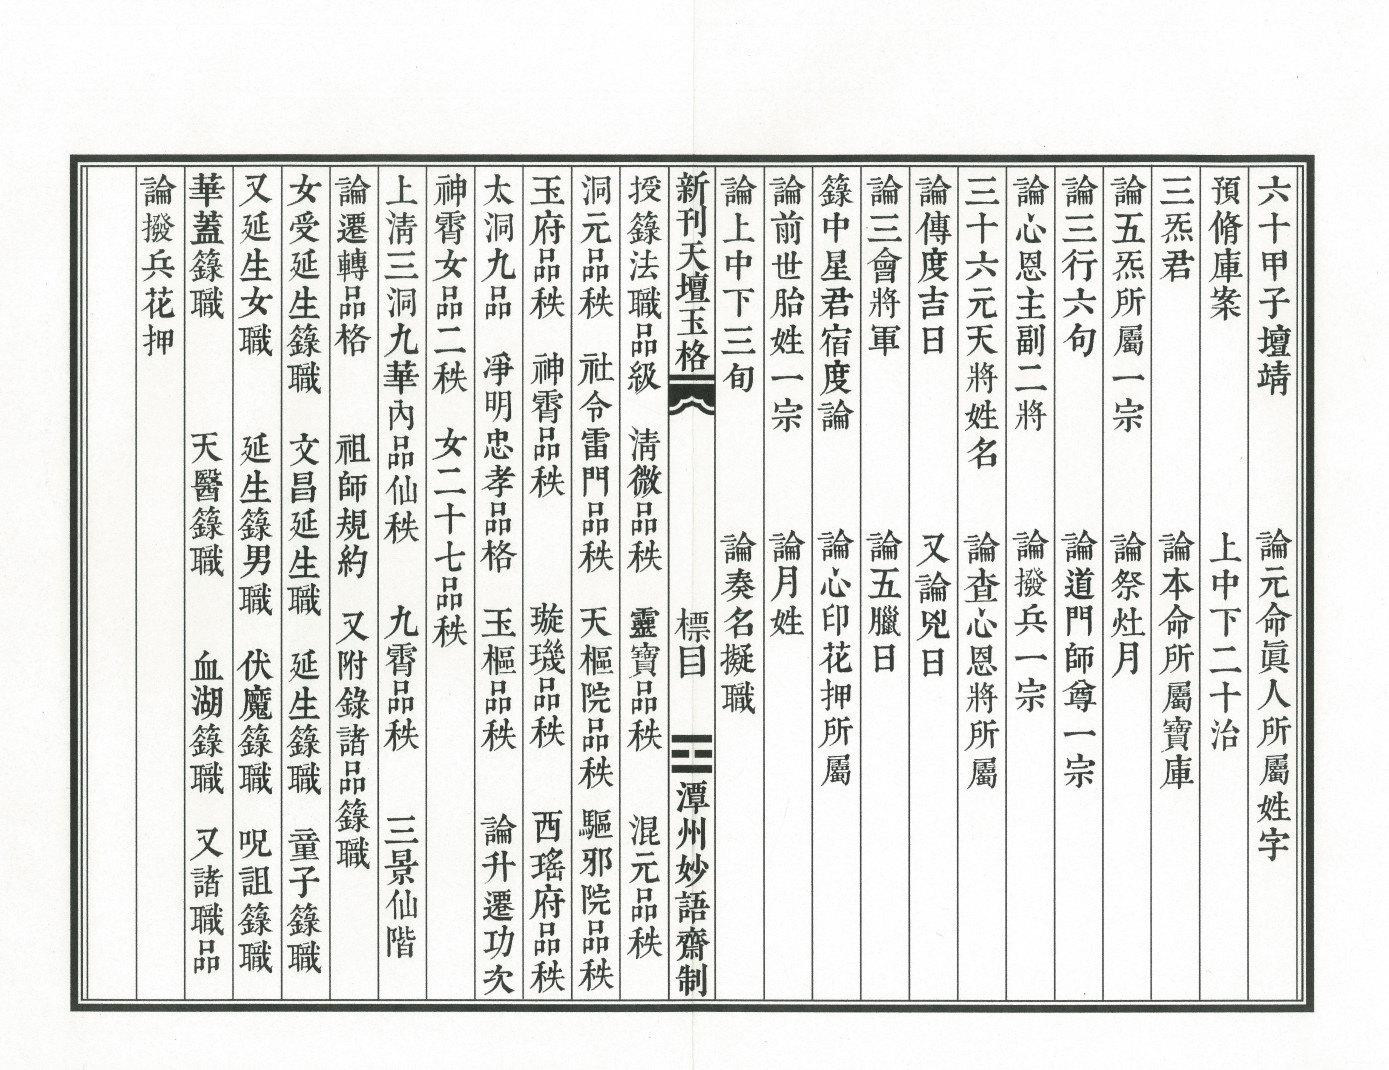 六十甲子壇靖　論元命眞人所屬姓字
預脩庫案　上中下二十治
三炁君　論本命所屬寶庫
論五炁所屬一宗　論祭灶月
論三行六句　論道門師尊一宗
論心恩主副二將　論撥兵一宗
三十六元天將姓名　論查心恩將所屬
論傳度吉日　又論兇日
論三會將軍　論五臘日
籙中星君宿度論　論心印花押所屬
論前世胎姓一宗　論月姓
論上中下三旬　論奏名擬職
新刊天壇玉格　標目　潭州妙語齋制
授籙法職品級　淸微品秩　靈寶品秩　混元品秩
洞元品秩　社令雷門品秩　天樞院品秩　驅邪院品秩
玉府品秩　神霄品秩　璇璣品秩　西瑤府品秩
太洞九品　淨明忠孝品格　玉樞品秩　論升遷功次
神霄女品二秩　女二十七品秩
上淸三洞九華內品仙秩　九霄品秩　三景仙階
論遷轉品格　祖師規約　又附錄諸品籙職
女受延生籙職　文昌延生職　延生籙職　童子籙職
又延生女職　延生籙男職　伏魔籙職　呪詛籙職
華蓋籙職　天醫籙職　血湖籙職　又諸職品
論撥兵花押